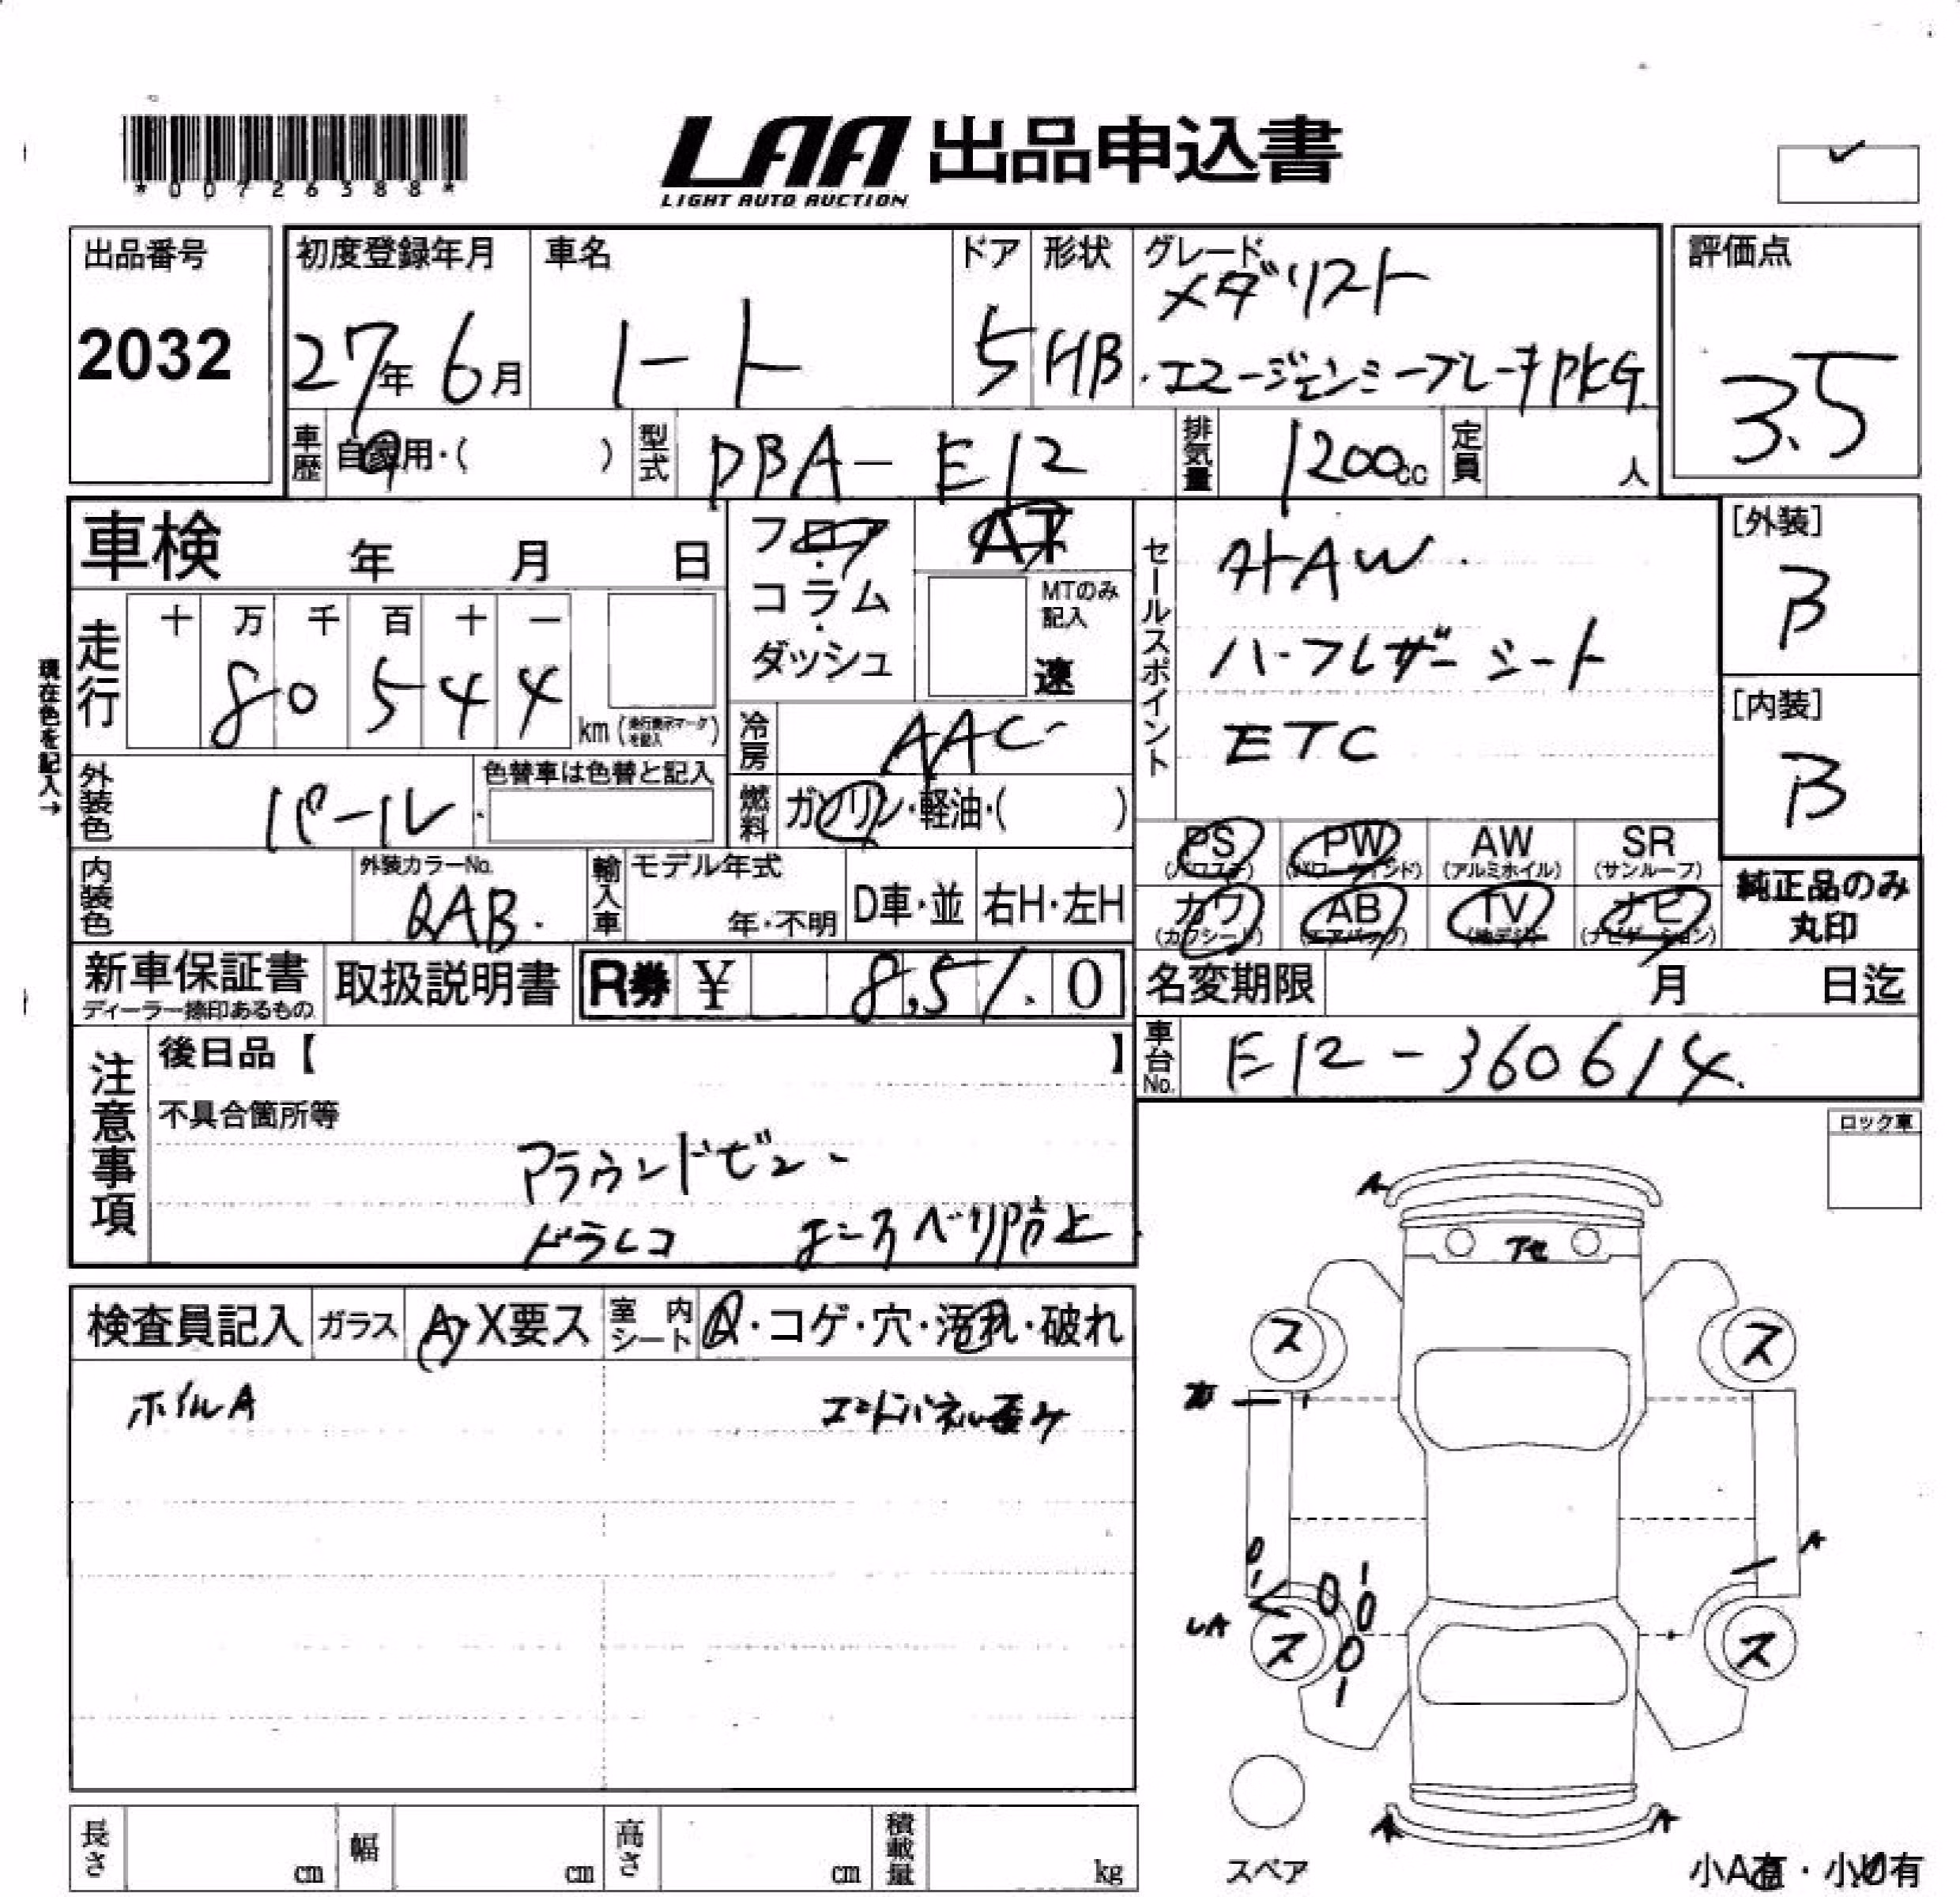 *00726588*
LAA 出品申込書
LIGHT AUTO AUCTION
出品番号 初度登録年月 車名 ドア 形状 グレード 評価点
メダリスト
2032 27年 6月 ノート 5 HB ・エマージェンシーブレーキPKG 3.5
車歴 自家用・( ) 型式 DBA-E12 排気量 1200cc 定員 人
車検 年 月 日
フロア・コラム・ダッシュ AT
MTのみ記入 速
セールスポイント
社AW
ハーフレザーシート
ETC
[外装]
B
[内装]
B
現在色を記入→
走行 十 万 千 百 十 一
80544 km (走行表示マークを記入)
冷房 AAC
外装色 パール 色替車は色替と記入
燃料 ガソリン・軽油・( )
PS PW AW SR
(パワステ) (パワーウインド) (アルミホイル) (サンルーフ)
カワ AB TV ナビ
(カワシート) (エアバッグ) (地デジ) (ナビゲーション)
純正品のみ
丸印
内装色 外装カラーNo. QAB 輸入車 モデル年式 年・不明 D車・並 右H・左H
新車保証書 取扱説明書 R券 ¥ 8,51.0 名変期限 月 日迄
ディーラー捺印あるもの
車台No. E12-360614
注意事項
後日品【 】
不具合箇所等
アラウンドビュー
ドラレコ よこすべり防止
ロック車
検査員記入 ガラス A・X要ス 室内シート A・コゲ・穴・汚れ・破れ
ホイルA エンドパネル歪み
A
アセ
ス ス
A
LA
ス ス
A A
スペア
小A有・小U有
長さ cm 幅 cm 高さ cm 積載量 kg